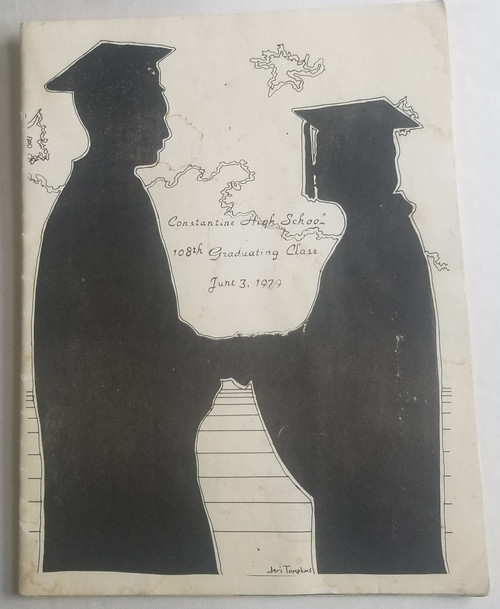 Constantine High School
108th Graduating Class
June 3, 1979
Jeri Tompkins